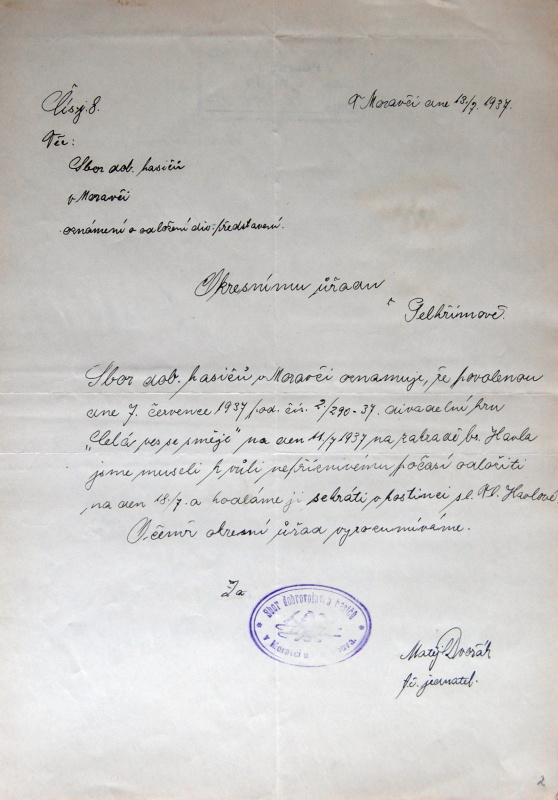 Čísj. 8.
V Moravči dne 13/7. 1937.
Věc:
Sbor dob. hasičů
v Moravči
oznámení o odložení div. představení.
Okresnímu úřadu
v Pelhřimově.
Sbor dob. hasičů v Moravči oznamuje, že povolenou
dne 7. července 1937 pod čís. 2/290-37. divadelní hru
"Celá ves se směje" na den 11/7 1937 na zahradě br. Havla
jsme museli k vůli nepříznivému počasí odložiti
na den 18./7. a hodláme ji sehráti v hostinci sl. Havlové
O čemž okresní úřad vyrozumíváme.
Za
Sbor dobrovolných hasičů
v Moravči
Matěj Dvořák
t. č. jednatel.
2